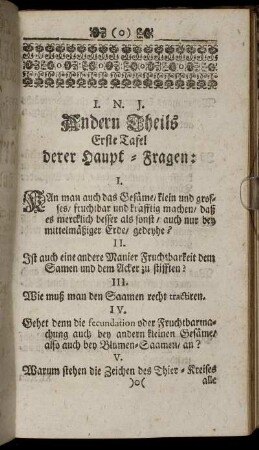 (o)
I. N. J.
Andern Theils
Erste Tafel
derer Haupt-Fragen:
I.
KAn man auch das Gesäme/ klein und gros-
ses/ fruchtbar und kräfftig machen/ daß
es mercklich besser als sonst/ auch nur bey
mittelmäßiger Erde/ gedeyhe?
II.
Ist auch eine andere Manier Fruchtbarkeit dem
Samen und dem Acker zu stifften?
III.
Wie muß man den Saamen recht tractiren.
IV.
Gehet denn die fecundation oder Fruchtbarma-
chung auch bey andern kleinen Gesäme/
also auch bey Blumen-Saamen/ an?
V.
Warum stehen die Zeichen des Thier-Kreises
)o( alle